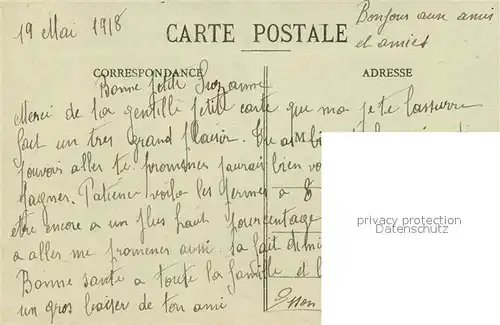 19 Mai 1918
Bonjour aux amis
et amies
CARTE POSTALE
CORRESPONDANCE
ADRESSE
Bonne petite Suzanne
Merci de ta gentille petite carte qui ma je te lassure
fait un tres grand plaisir. Tu as bi
pouvoir aller te promener jaurai bien vo
gagner. Patience voila les permes a 8
etre encore a un plus haut pourcentage
a aller me promener aussi. sa fait du mi
Bonne santé a toute la famille et l
un gros baiser de ton ami
M
privacy protection
Datenschutz